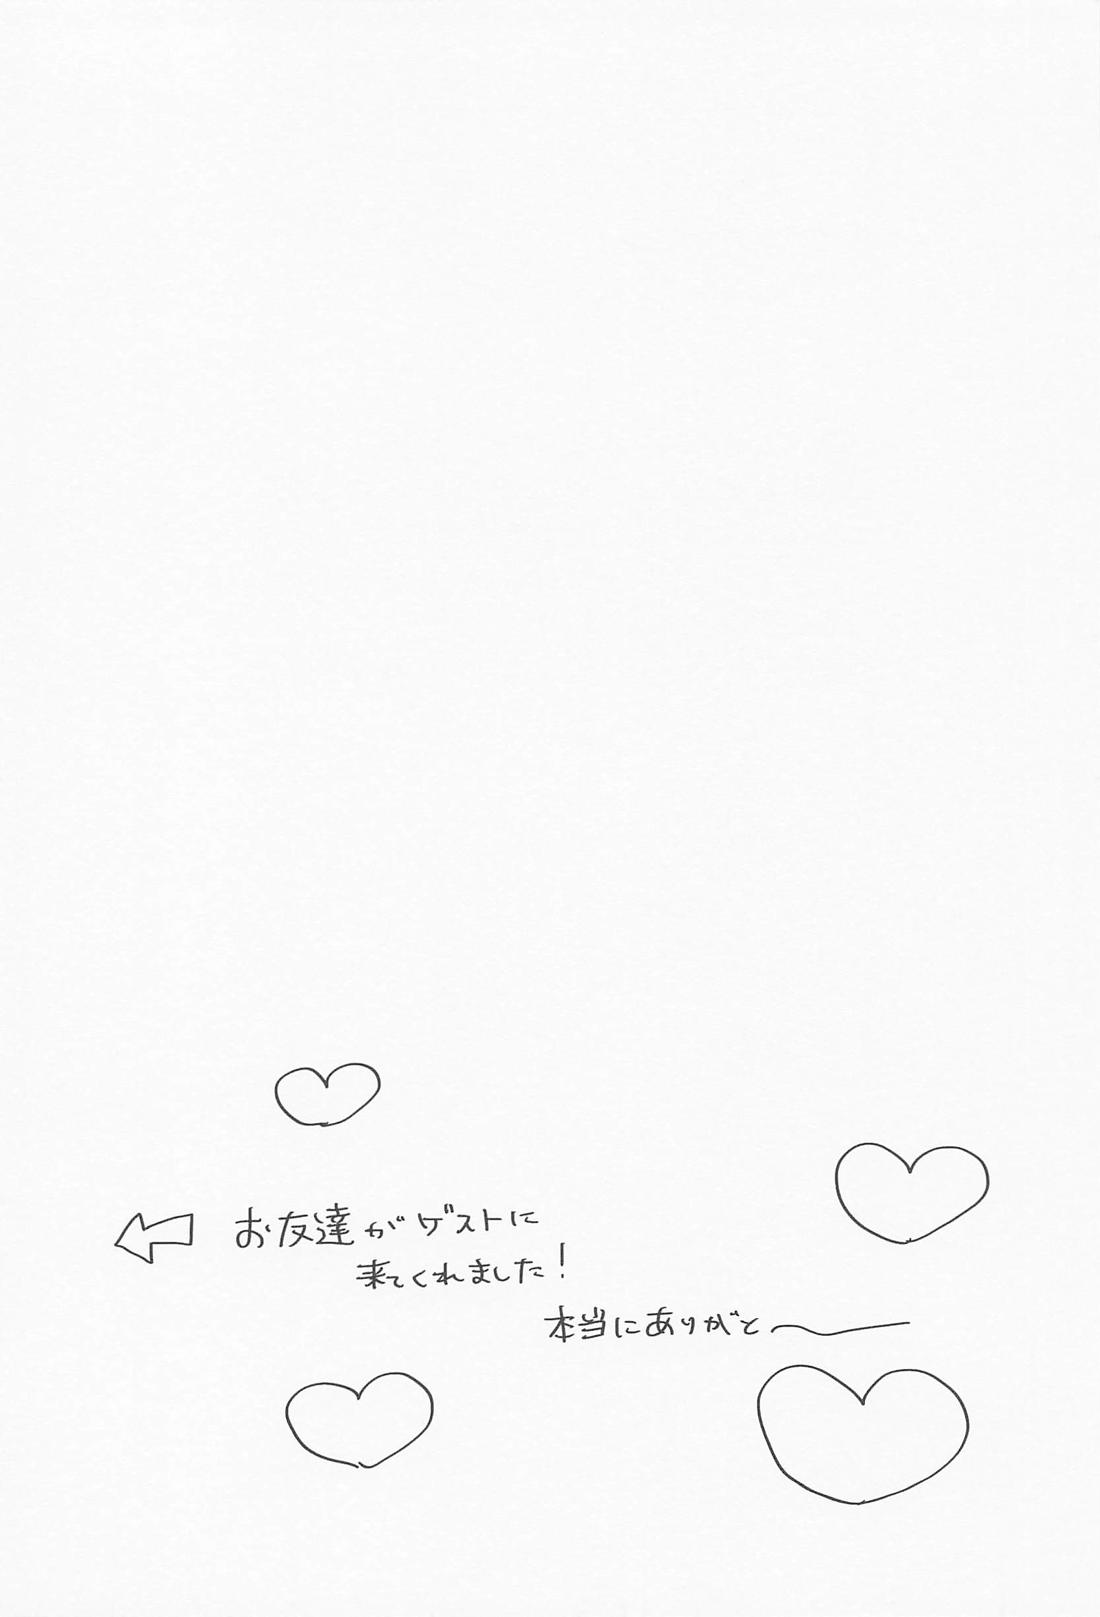 お友達がゲストに
来てくれました!
本当にありがと〜